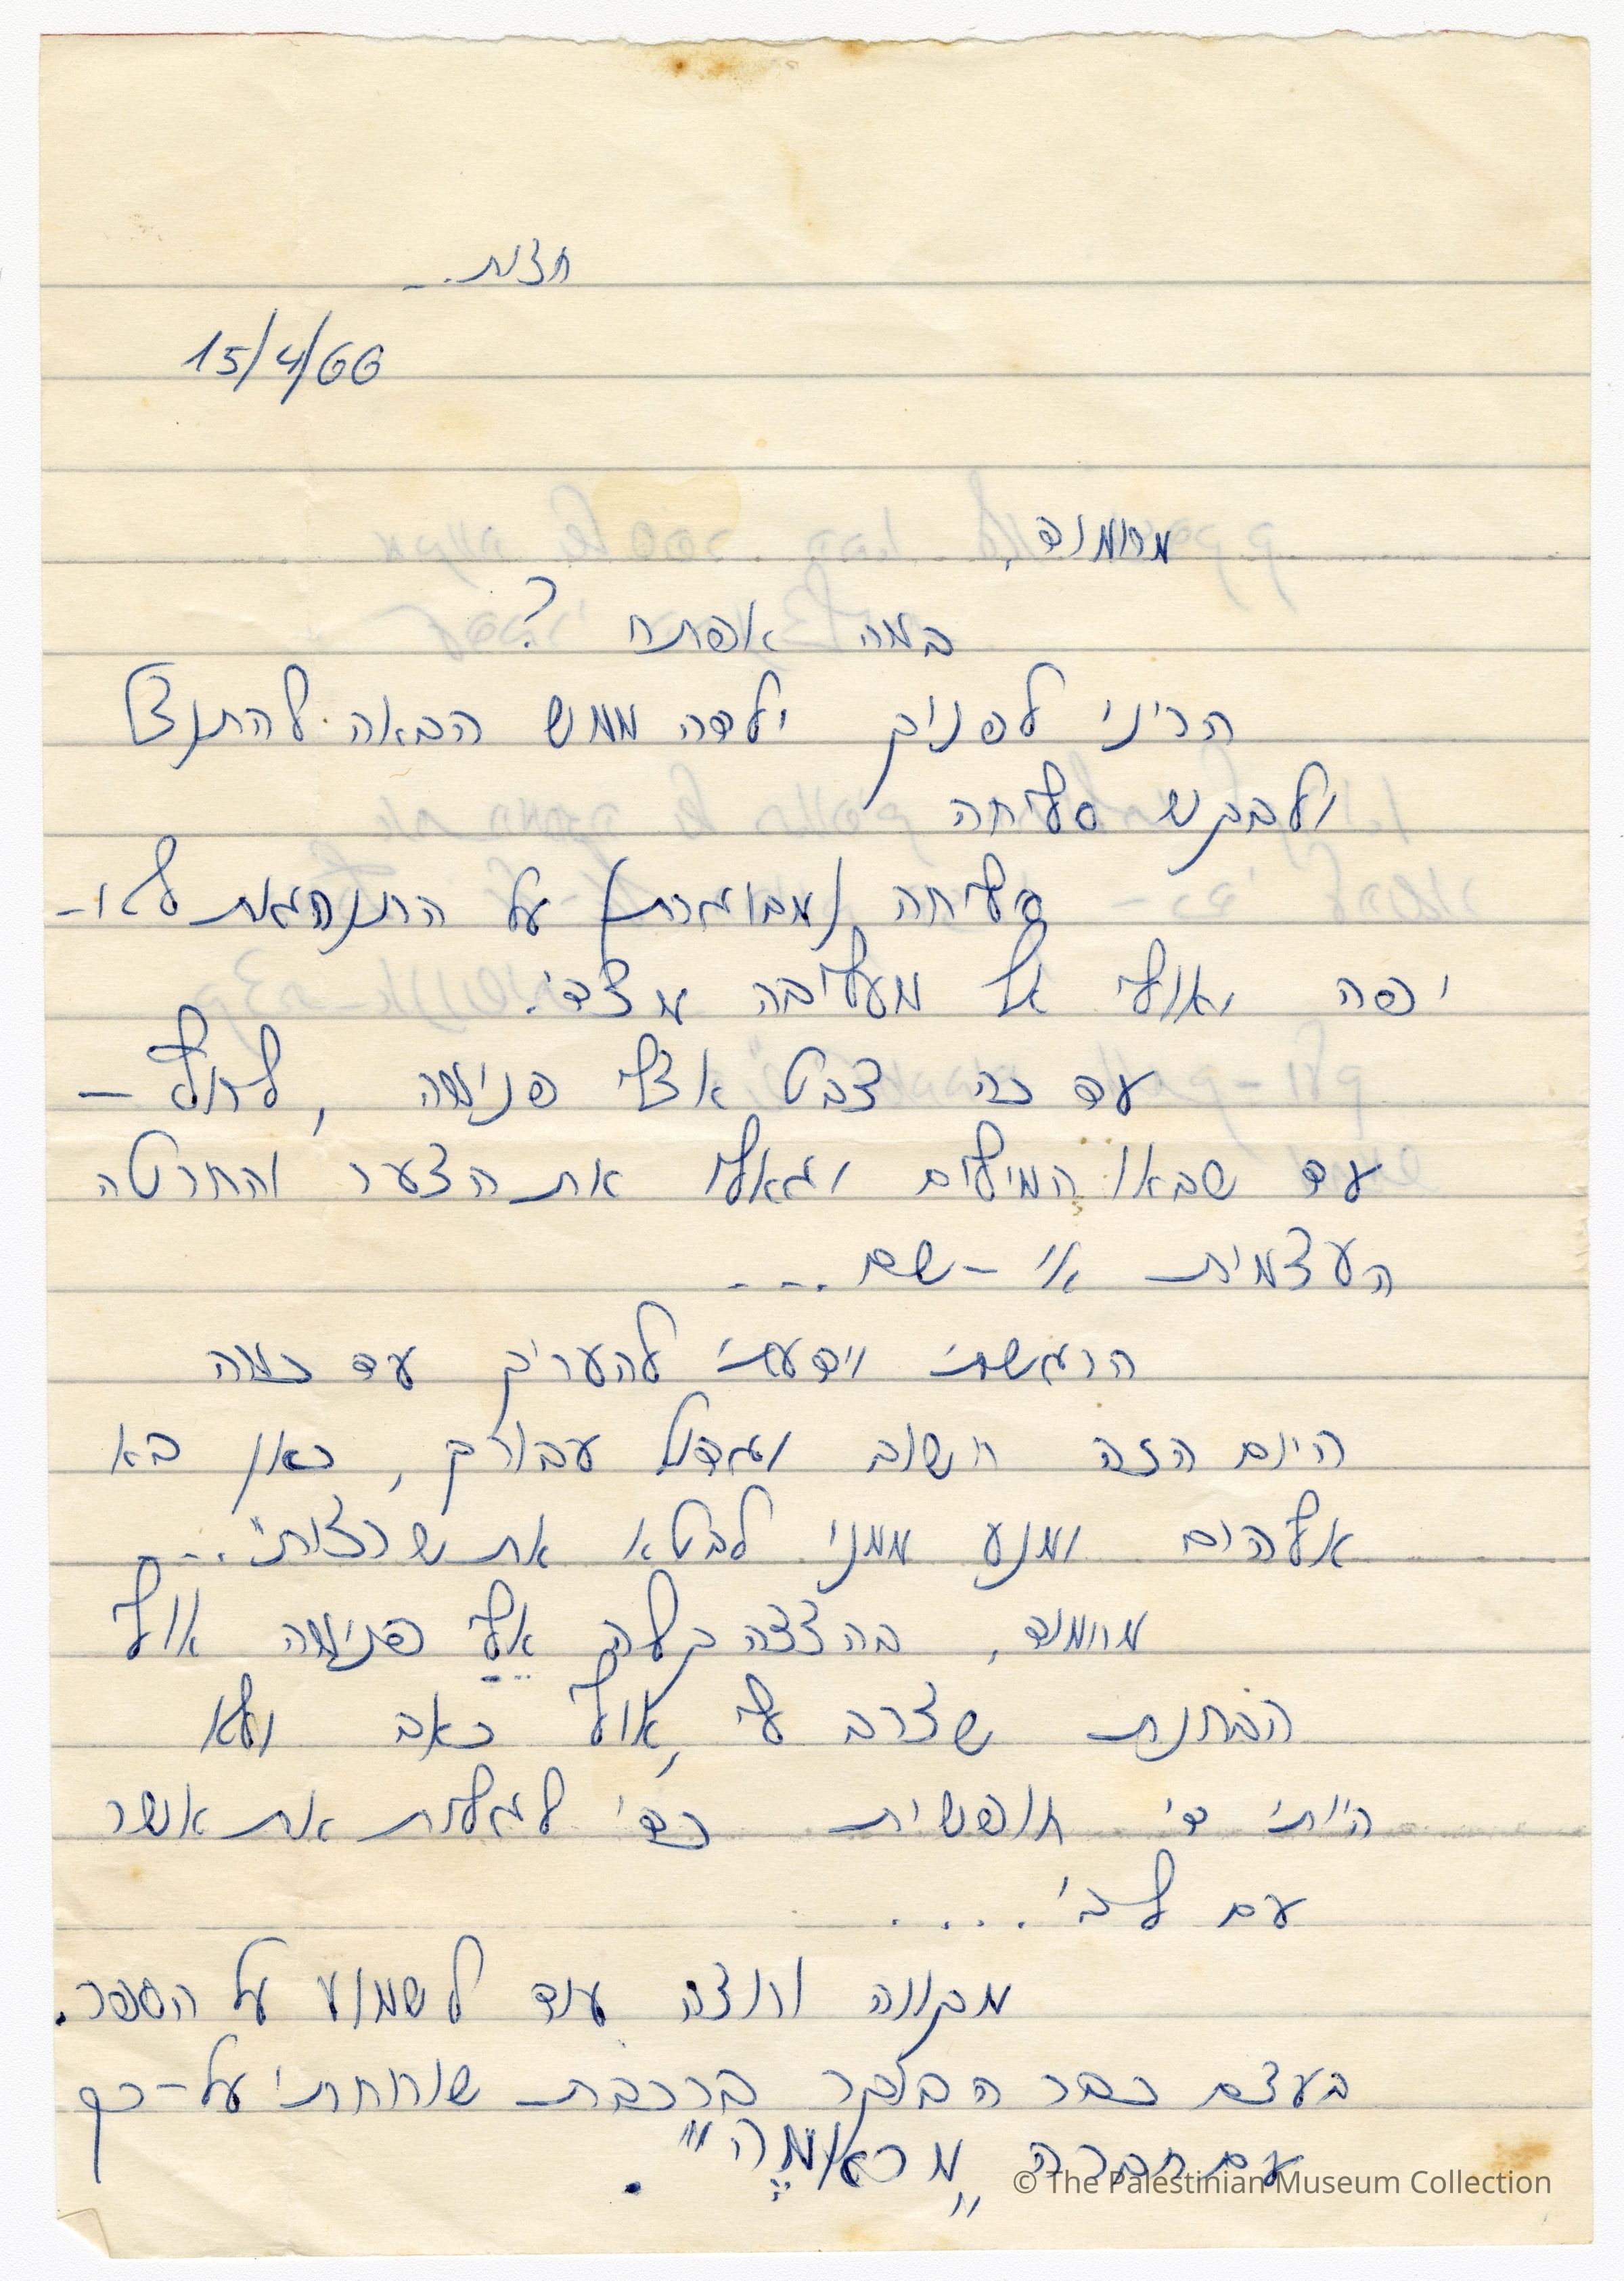 חצות...
15/4/66
מחמוד,
במה אפתח ?
הריני לפניך ילדה ממש הבאה להתנצל
ולבקש סליחה
סליחה (מבוגרת) על התנהגות לא-
יפה ואולי אף מעליבה מצדי.
עד כה צבט אצלי פנימה, לחלל -
עד שבאו המילים וגאלו את הצער והחרטה
העצמית אי-שם ....
הרגשתי וידעתי להעריך עד כמה
היום הזה חשוב וגדול עבורך, כאן בא
אלהים ומנע ממני לבטא את שרצותי...
מחמוד, בהצצה קלה אלַי פנימה אולי
הבחנת שצרב לי, אולי כאב ולא
הייתי די חופשית כדי לגלות את אשר
עם לבי ....
מקווה ורוצה עוד לשמוע על הספר.
בעצם כבר הבוקר ברכבת שוחחתי על-כך
עם חברה "מראומה".
© The Palestinian Museum Collection